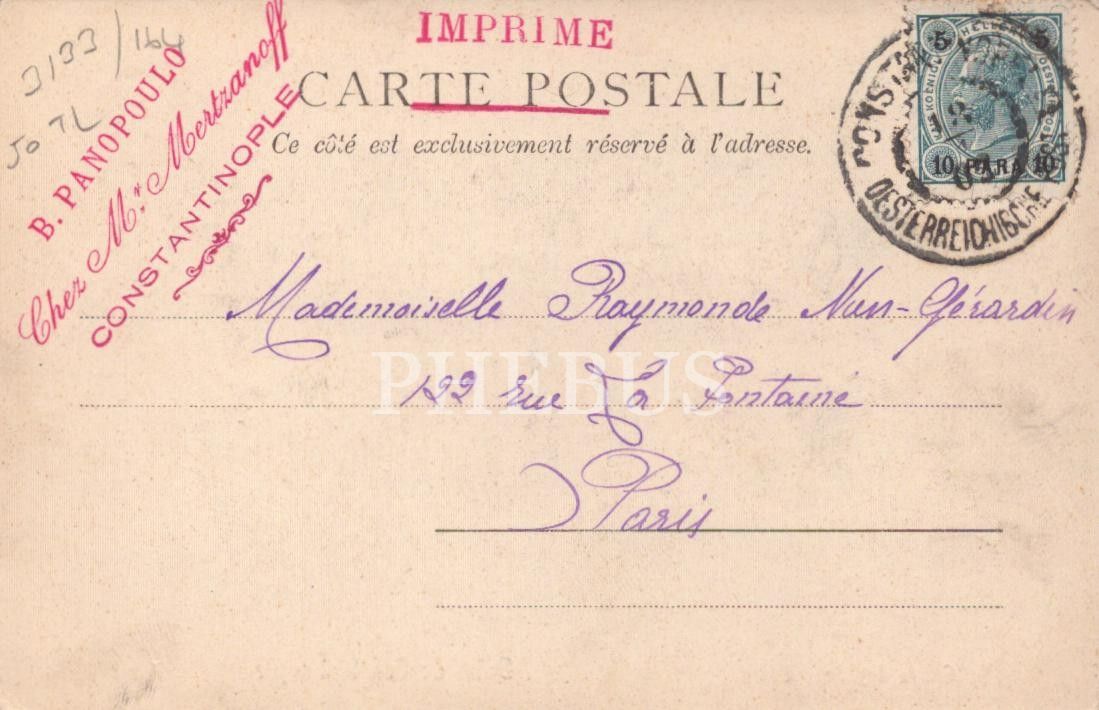 IMPRIME
CARTE POSTALE
Ce côté est exclusivement réservé à l'adresse.
3133/164
50 TL
B. PANOPOULO
Chez Mr. Mertzanoff
CONSTANTINOPLE
5 HELLER 5
10 PARA 10
OESTERREICHISCHE POST
03
Mademoiselle Raymonde Nun-Gérardin
122 rue La Fontaine
Paris
PHEBUS